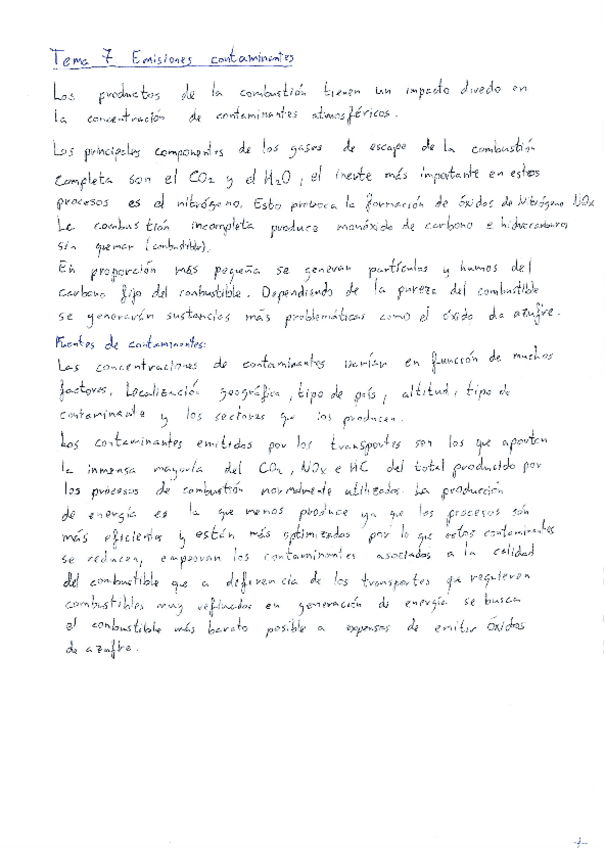 Tema 7 Emisiones contaminantes
Los productos de la combustión tienen un impacto directo en
la concentración de contaminantes atmosféricos.
Los principales componentes de los gases de escape de la combustión
completa son el CO2 y el H2O, el inerte más importante en estos
procesos es el nitrógeno. Esto provoca la formación de óxidos de Nitrógeno NOx
La combustión incompleta produce monóxido de carbono e hidrocarburos
sin quemar (combustible).
En proporción más pequeña se generan partículas y humos del
carbono fijo del combustible. Dependiendo de la pureza del combustible
se generarán sustancias más problemáticas como el óxido de azufre.
Fuentes de contaminantes:
Las concentraciones de contaminantes varían en función de muchos
factores. Localización geográfica, tipo de país, altitud, tipo de
contaminante y los sectores que los producen.
Los contaminantes emitidos por los transportes son los que aportan
la inmensa mayoría del CO2, NOx e HC del total producido por
los procesos de combustión normalmente utilizados. La producción
de energía es la que menos produce ya que los procesos son
más eficientes y están más optimizados por lo que estos contaminantes
se reducen, empeoran los contaminantes asociados a la calidad
del combustible que a diferencia de los transportes que requieren
combustibles muy refinados en generación de energía se busca
el combustible más barato posible a expensas de emitir óxidos
de azufre.